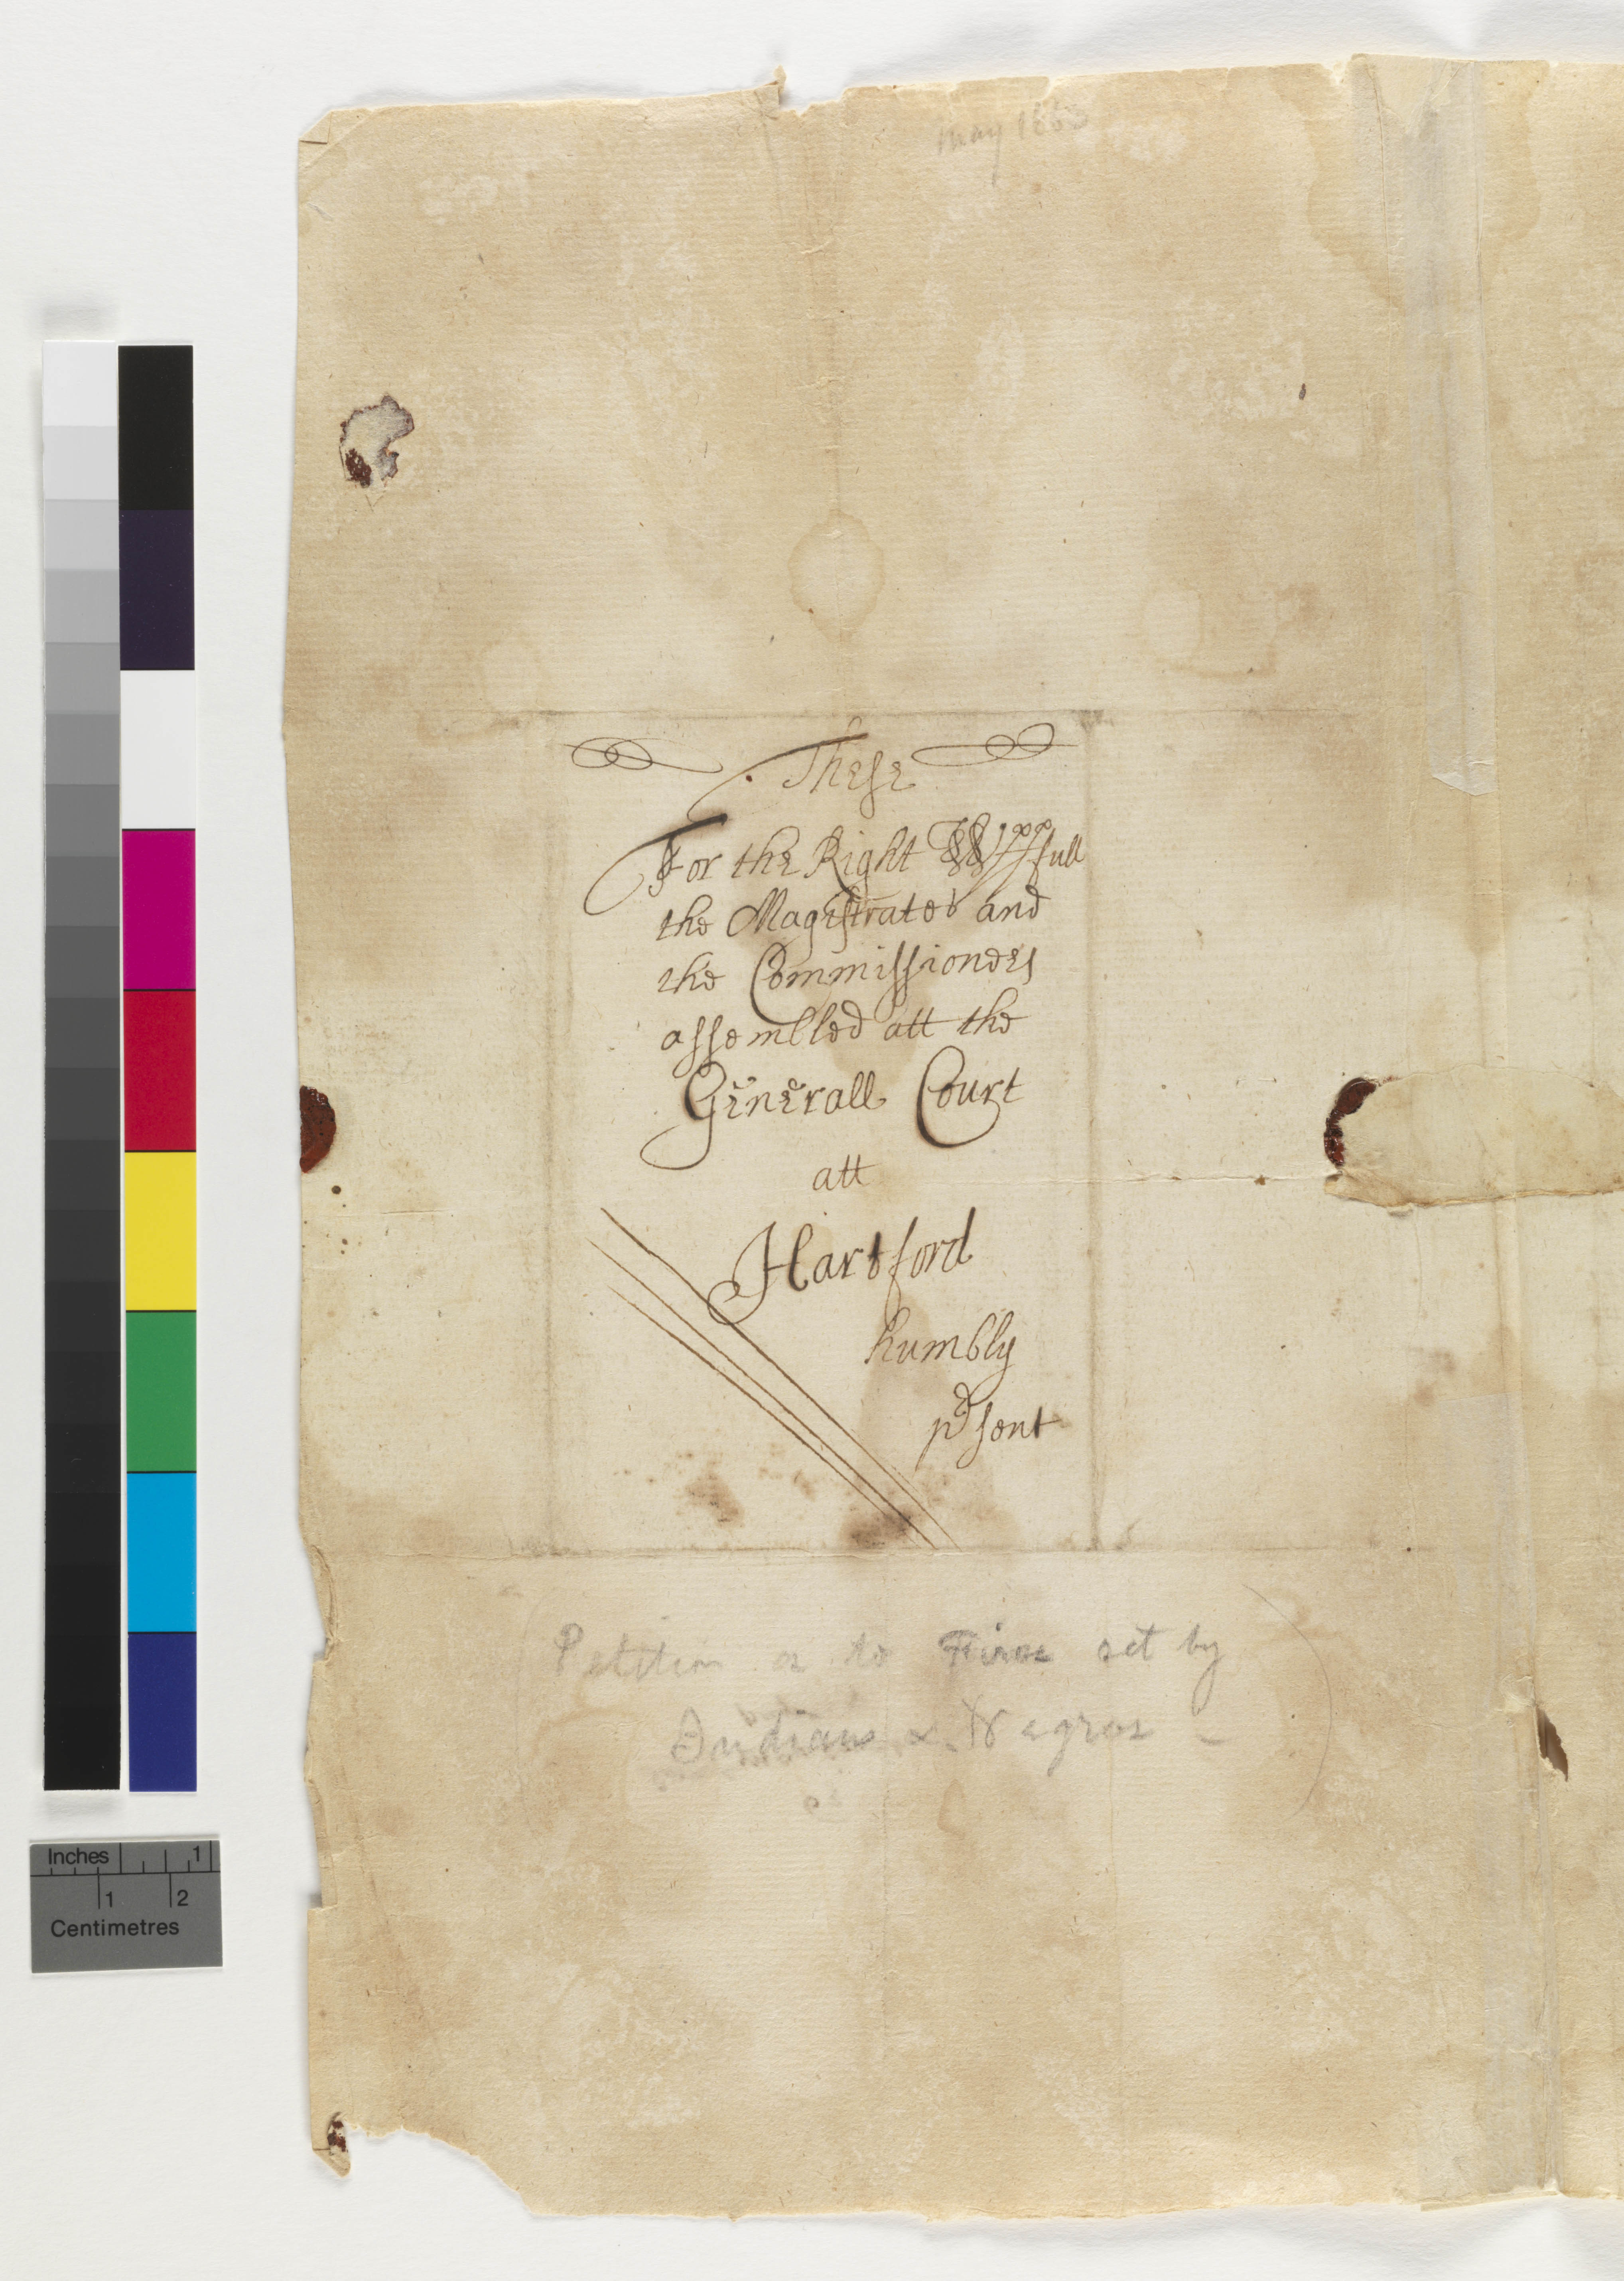 may
These
For the Right Wpp full
the Magistrates and
the Commissioners
assembled att the
Generall Court
att
Hartford
humbly
p sent
Petition as to Fires set by
Indians & Negros
Inches 1
1 2
Centimetres